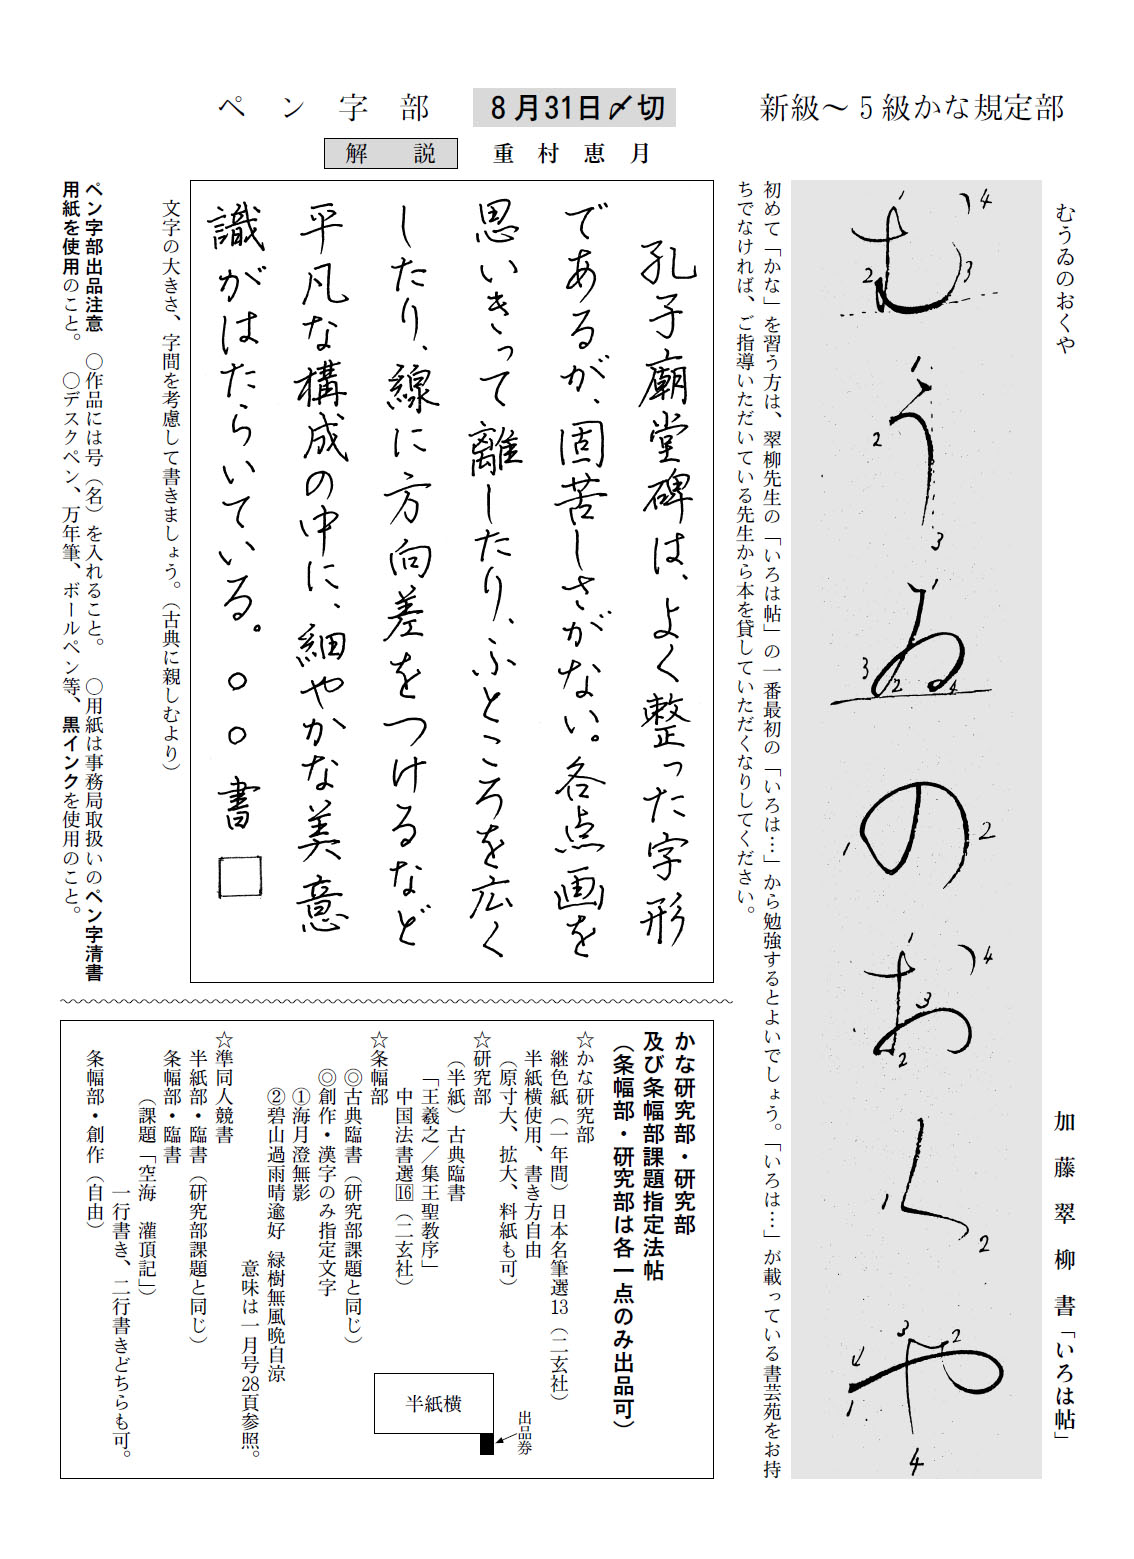 新級～5級かな規定部
8月31日〆切
ペン字部
むうゐのおくや
加藤翠柳書「いろは帖」
4
1
2
3
む
1
う
2
3
1
ゐ
3
2
4
の
1
2
1
4
お
3
2
く
1
2
や
3
2
4
1
4
初めて「かな」を習う方は、翠柳先生の「いろは帖」の一番最初の「いろは…」から勉強するとよいでしょう。「いろは…」が載っている書芸苑をお持
ちでなければ、ご指導いただいている先生から本を貸していただくなりしてください。
解説
重村恵月
孔子廟堂碑は、よく整った字形
であるが、固苦しさがない。各点画を
思いきって離したり、ふところを広く
したり、線に方向差をつけるなど
平凡な構成の中に、細やかな美意
識がはたらいている。○○書□
文字の大きさ、字間を考慮して書きましょう。（古典に親しむより）
ペン字部出品注意　○作品には号（名）を入れること。　○用紙は事務局取扱いのペン字清書
用紙を使用のこと。　○デスクペン、万年筆、ボールペン等、黒インクを使用のこと。
かな研究部・研究部
及び条幅部課題指定法帖
（条幅部・研究部は各一点のみ出品可）
☆かな研究部
継色紙（一年間）日本名筆選13（二玄社）
半紙横使用、書き方自由
（原寸大、拡大、料紙も可）
☆研究部
（半紙）古典臨書
「王羲之／集王聖教序」
中国法書選16（二玄社）
☆条幅部
◎古典臨書（研究部課題と同じ）
◎創作・漢字のみ指定文字
①海月澄無影
②碧山過雨晴逾好　緑樹無風晩自涼
意味は一月号28頁参照。
☆準同人競書
半紙部・臨書（研究部課題と同じ）
条幅部・臨書
（課題「空海　灌頂記」）
一行書き、二行書きどちらも可。
条幅部・創作（自由）
出品券
半紙横